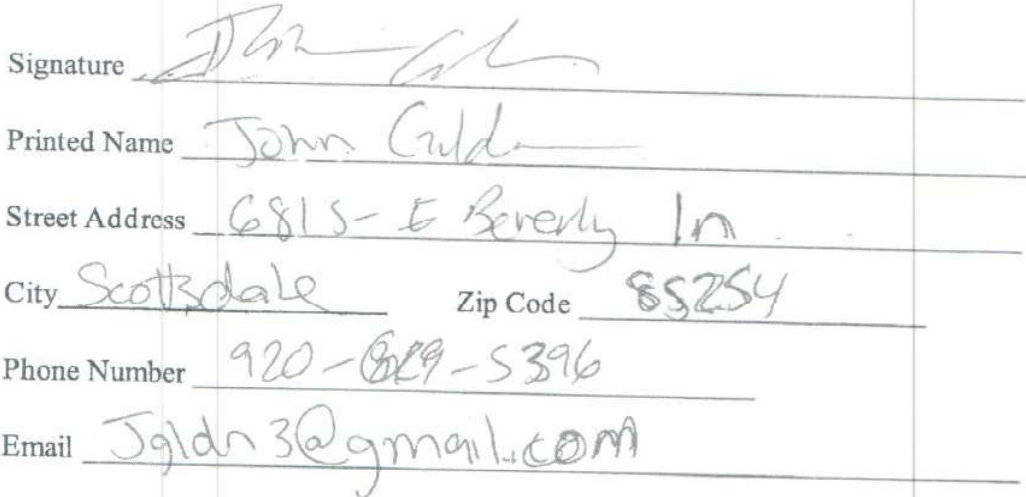 Signature
Printed Name John
Street Address 6815 - E Beverly ln
City Scottsdale Zip Code 85254
Phone Number 920-829-5396
Email Jgldn3@gmail.com